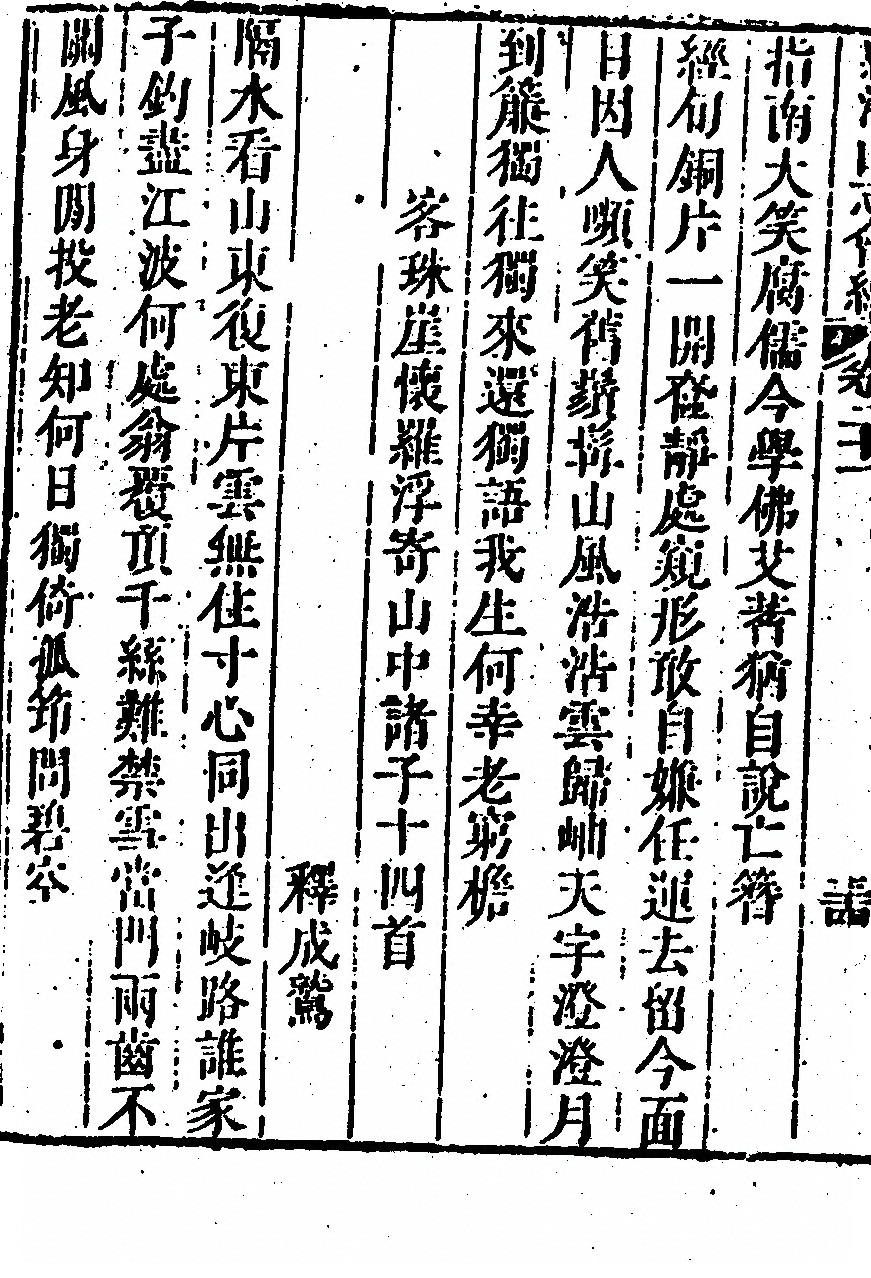 指南大笑腐儒今學佛艾耆猶自說亡簪
經旬銅片一開奩靜處窺形敢自嫌任運去留今面
目因人嚬笑舊鬚髯山風浩浩雲歸岫天宇澄澄月
到簷獨往獨來還獨語我生何幸老窮檐
客珠崖懷羅浮寄山中諸子十四首
釋成鷲
隔水看山東復東片雲無住寸心同出逢岐路誰家
子釣盡江波何處翁覆頂千絲難禁雪當門兩齒不
關風身閒投老知何日獨倚孤筇問碧空